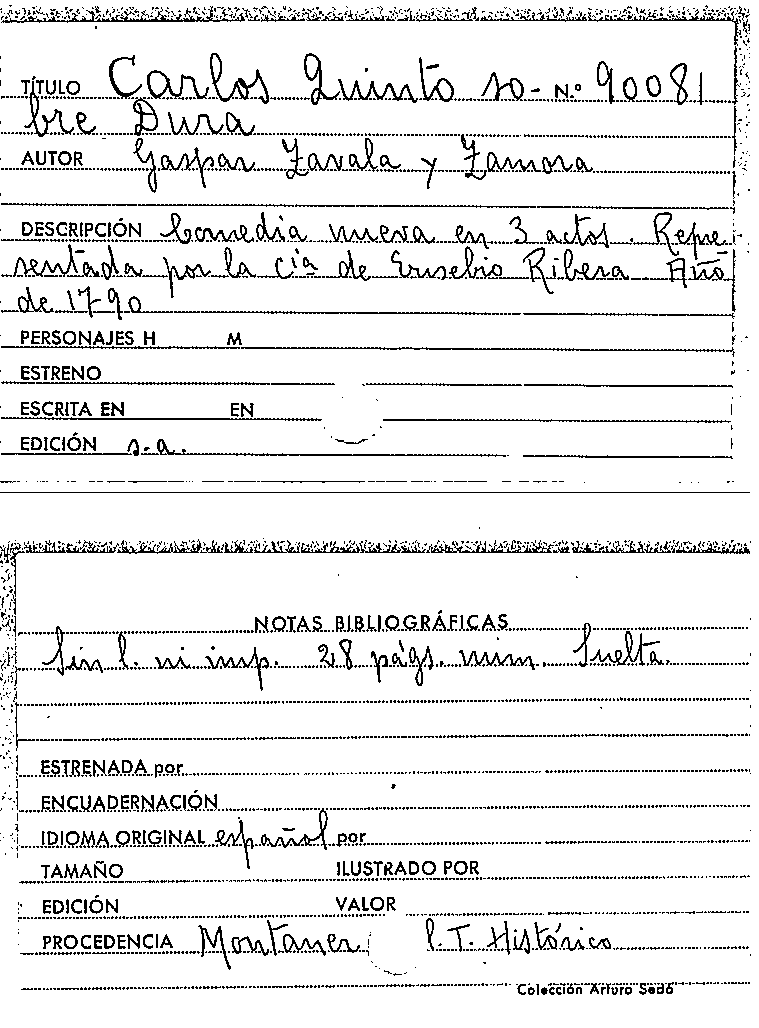 TÍTULO Carlos Quinto so- N.º 90081
bre Dura
AUTOR Gaspar Zavala y Zamora
DESCRIPCIÓN Comedia nueva en 3 actos. Repre-
sentada por la cía de Eusebio Ribera Año
de 1790
PERSONAJES H M
ESTRENO
ESCRITA EN EN
EDICIÓN s.a.
NOTAS BIBLIOGRÁFICAS
Sin l. ni imp. 28 págs. num. Suelta.
ESTRENADA por
ENCUADERNACIÓN
IDIOMA ORIGINAL español por
TAMAÑO ILUSTRADO POR
EDICIÓN VALOR
PROCEDENCIA Montaner P.T. Histórico
Colección Arturo Sedó